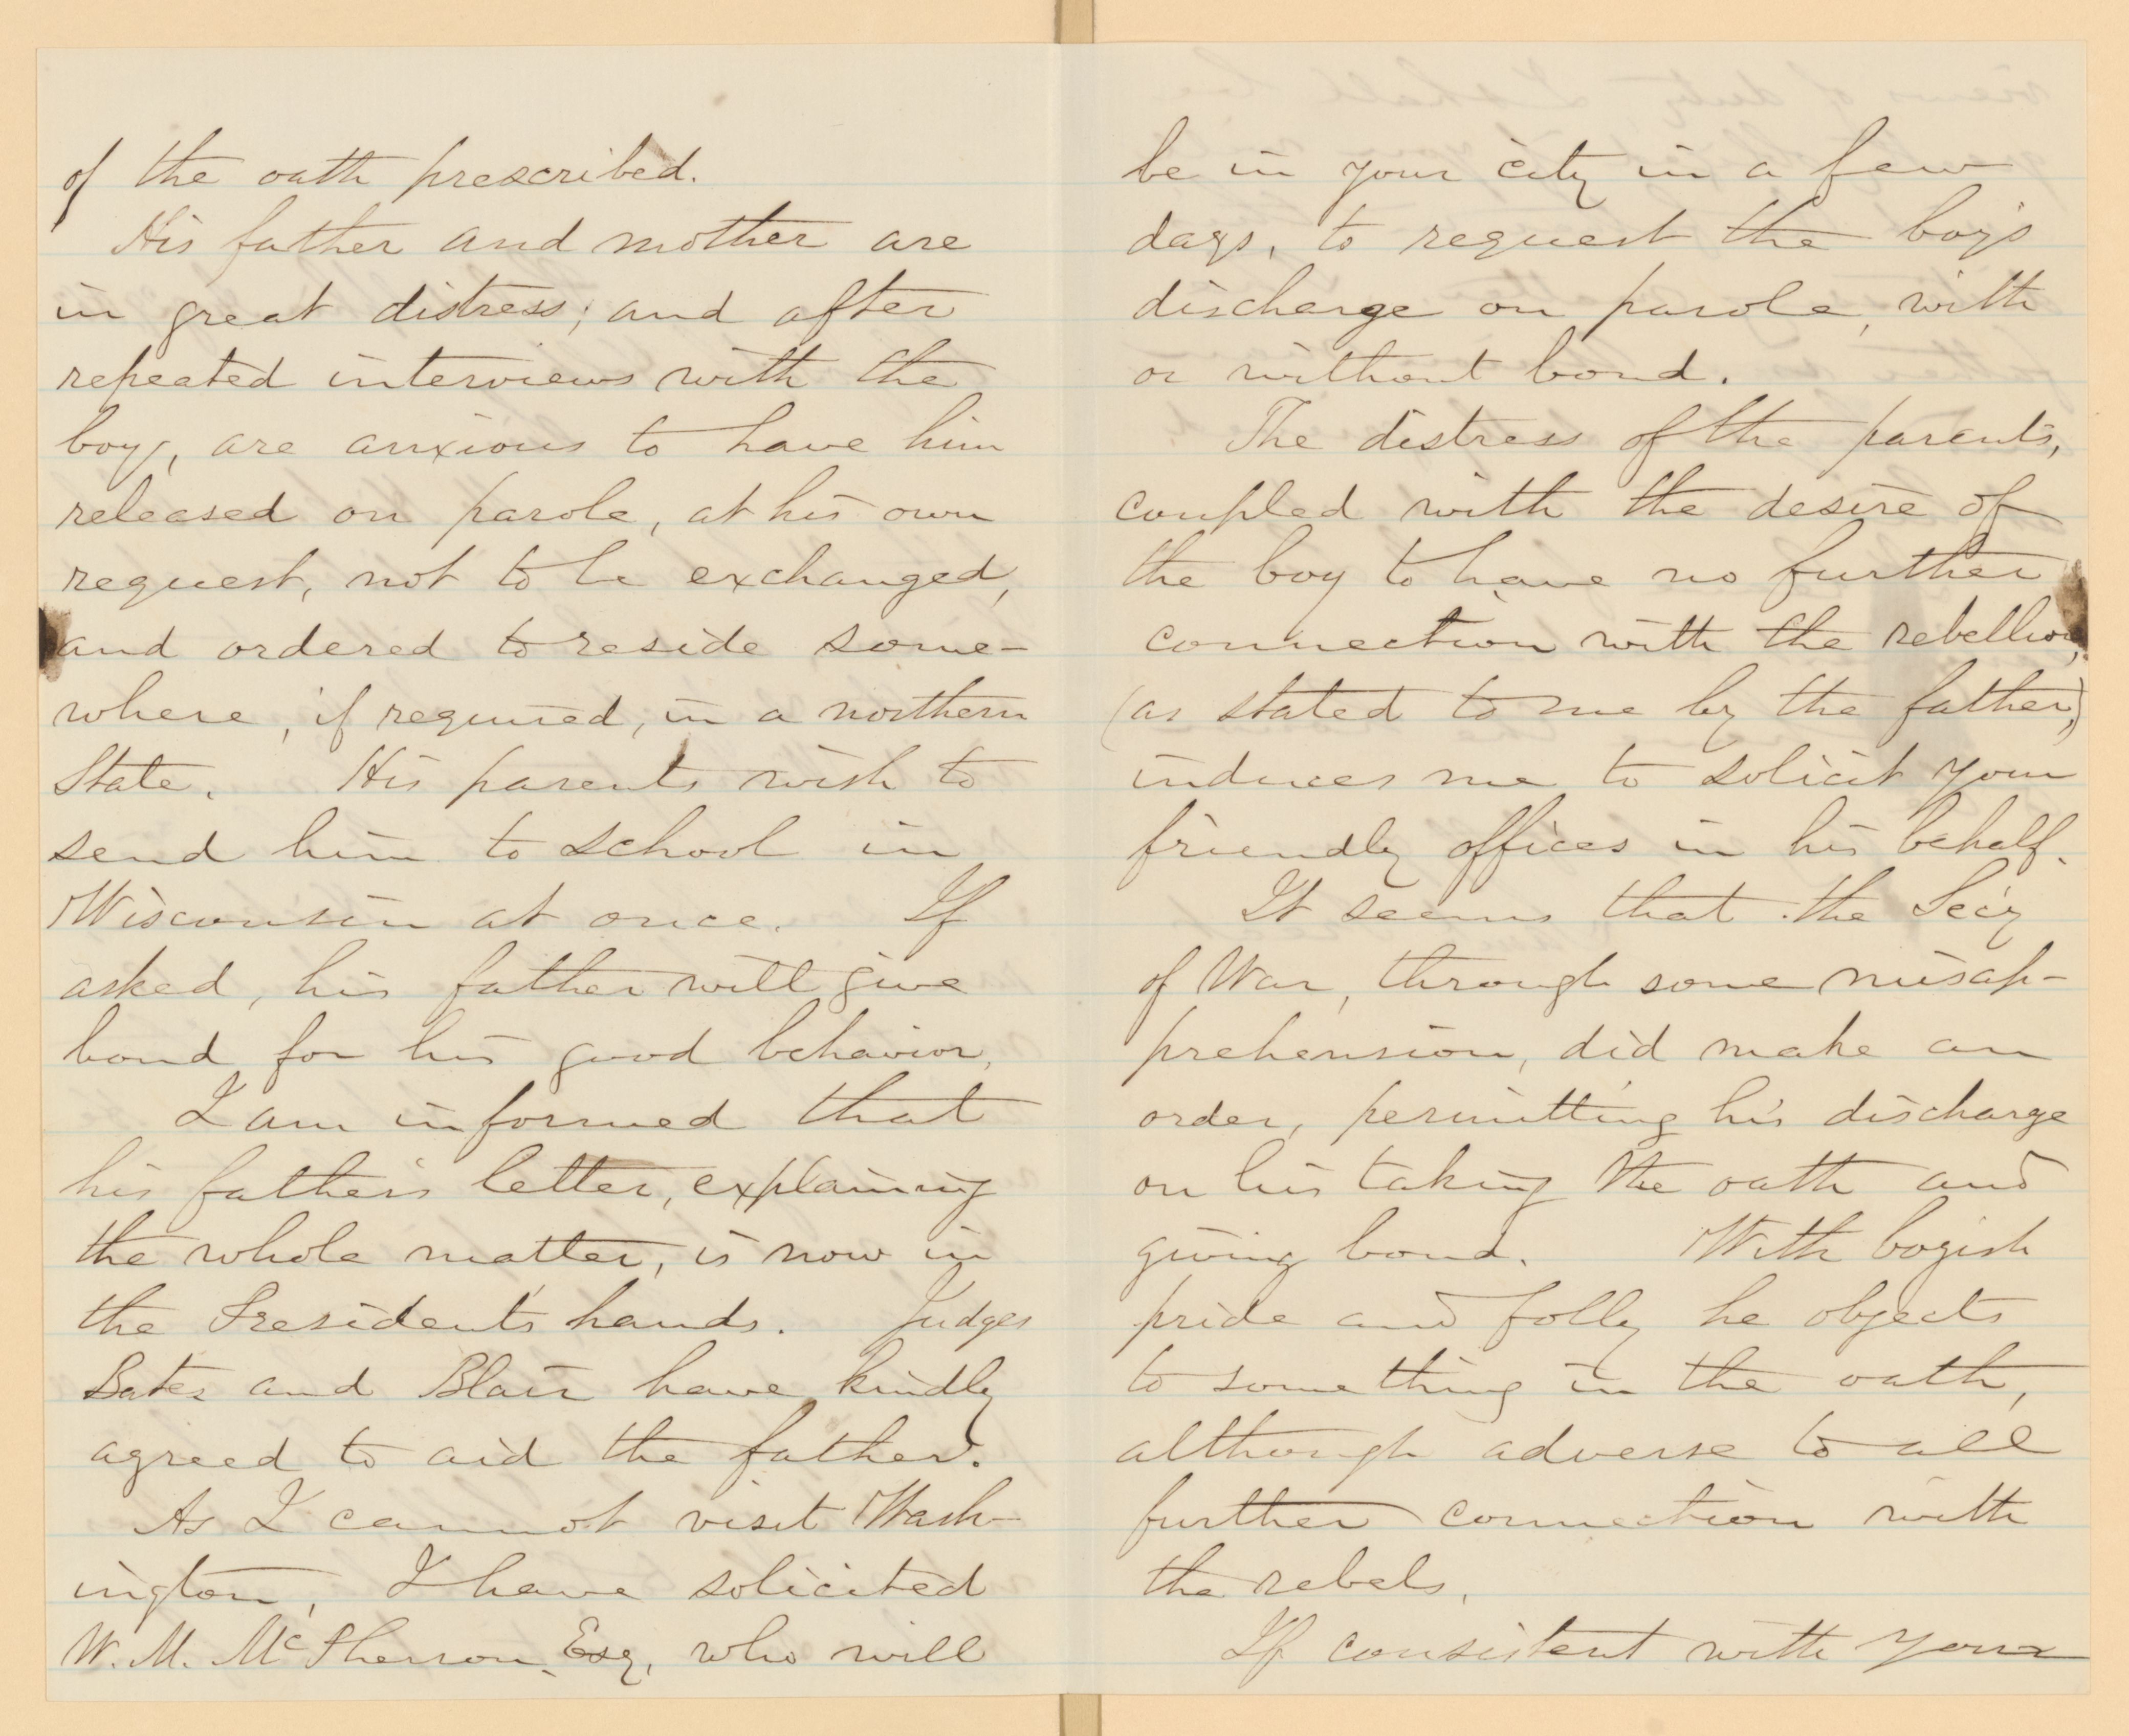 of the oath prescribed.
His father and mother are
in great distress; and after
repeated interviews with the
boy, are anxious to have him
released on parole, at his own
request, not to be exchanged,
and ordered to reside some-
where, if required, in a northern
State. His parents wish to
send him to school in
Wisconsin at once. If
asked, his father will give
bond for his good behavior.
I am informed that
his father's letter, explaining
the whole matter, is now in
the President's hands. Judges
Bates and Blair have kindly
agreed to aid the father.
As I cannot visit Wash-
ington, I have solicited
W. M. McPherson, Esq, who will
be in your city in a few
days, to request the boy's
discharge on parole, with
or without bond.
The distress of the parents,
coupled with the desire of
the boy to have no further
connection with the rebellion,
(as stated to me by the father,)
induces me to solicit your
friendly offices in his behalf.
It seems that the Sec'y
of War, through some misap-
prehension, did make an
order, permitting his discharge
on his taking the oath and
giving bond. With boyish
pride and folly he objects
to something in the oath,
although adverse to all
further connection with
the rebels.
If consistent with your